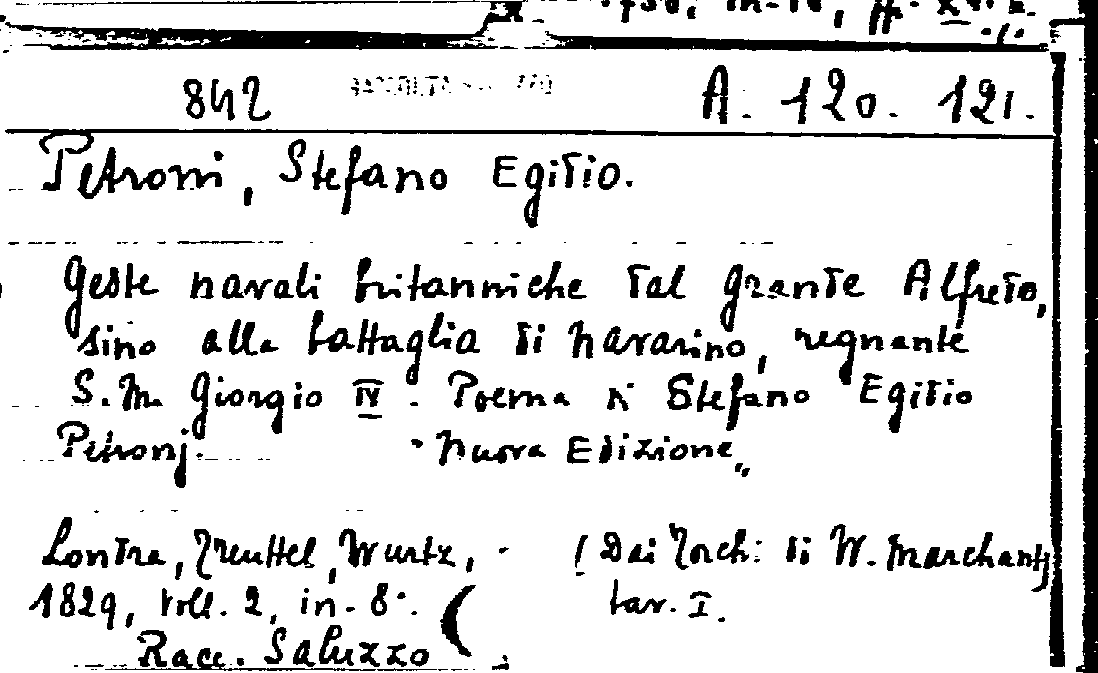 842 A. 120. 121.
Petroni, Stefano Egidio.
Geste navali britanniche dal grande Alfredo,
sino alla battaglia di Navarino, regnante
S. M. Giorgio IV. Poema di Stefano Egidio
Petronj. "Nuova Edizione„
Londra, Treuttel, Wurtz, (Dai Torchi di W. Marchant)
1829, voll. 2, in-8°. tav. I.
Racc. Saluzzo